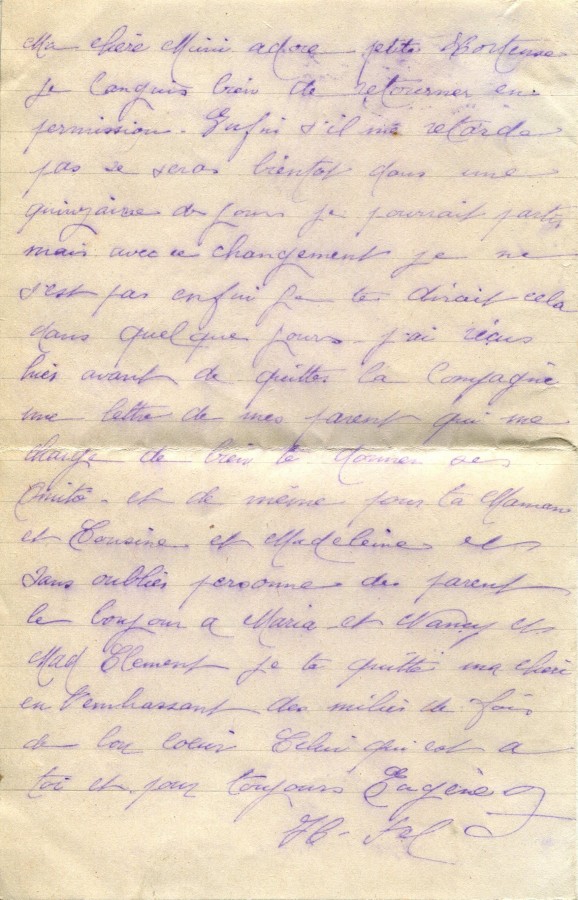 Ma chère Mimi adore petite Hortense
je languis bien de retourner en
permission. Enfin s'il me retarde
pas se seras bientot dans une
quinzaine de jours je pourrait partir
mais avec ce changement je ne
s'est pas enfin je te dirait cela
dans quelque jours. j'ai reçus
hier avant de quitter la Compagnie
une lettre de mes parent qui me
charge de bien te donner ses
Amitié. et de même pour ta Maman
et Cousine et Madeleine et
sans oublier personne des parent
le bonjour a Maria et Nancy et
Mad Clement je te quitte ma cheri
en t'embrassant des milier de fois
de bon coeur Celui qui est a
toi et pour toujours Eugène